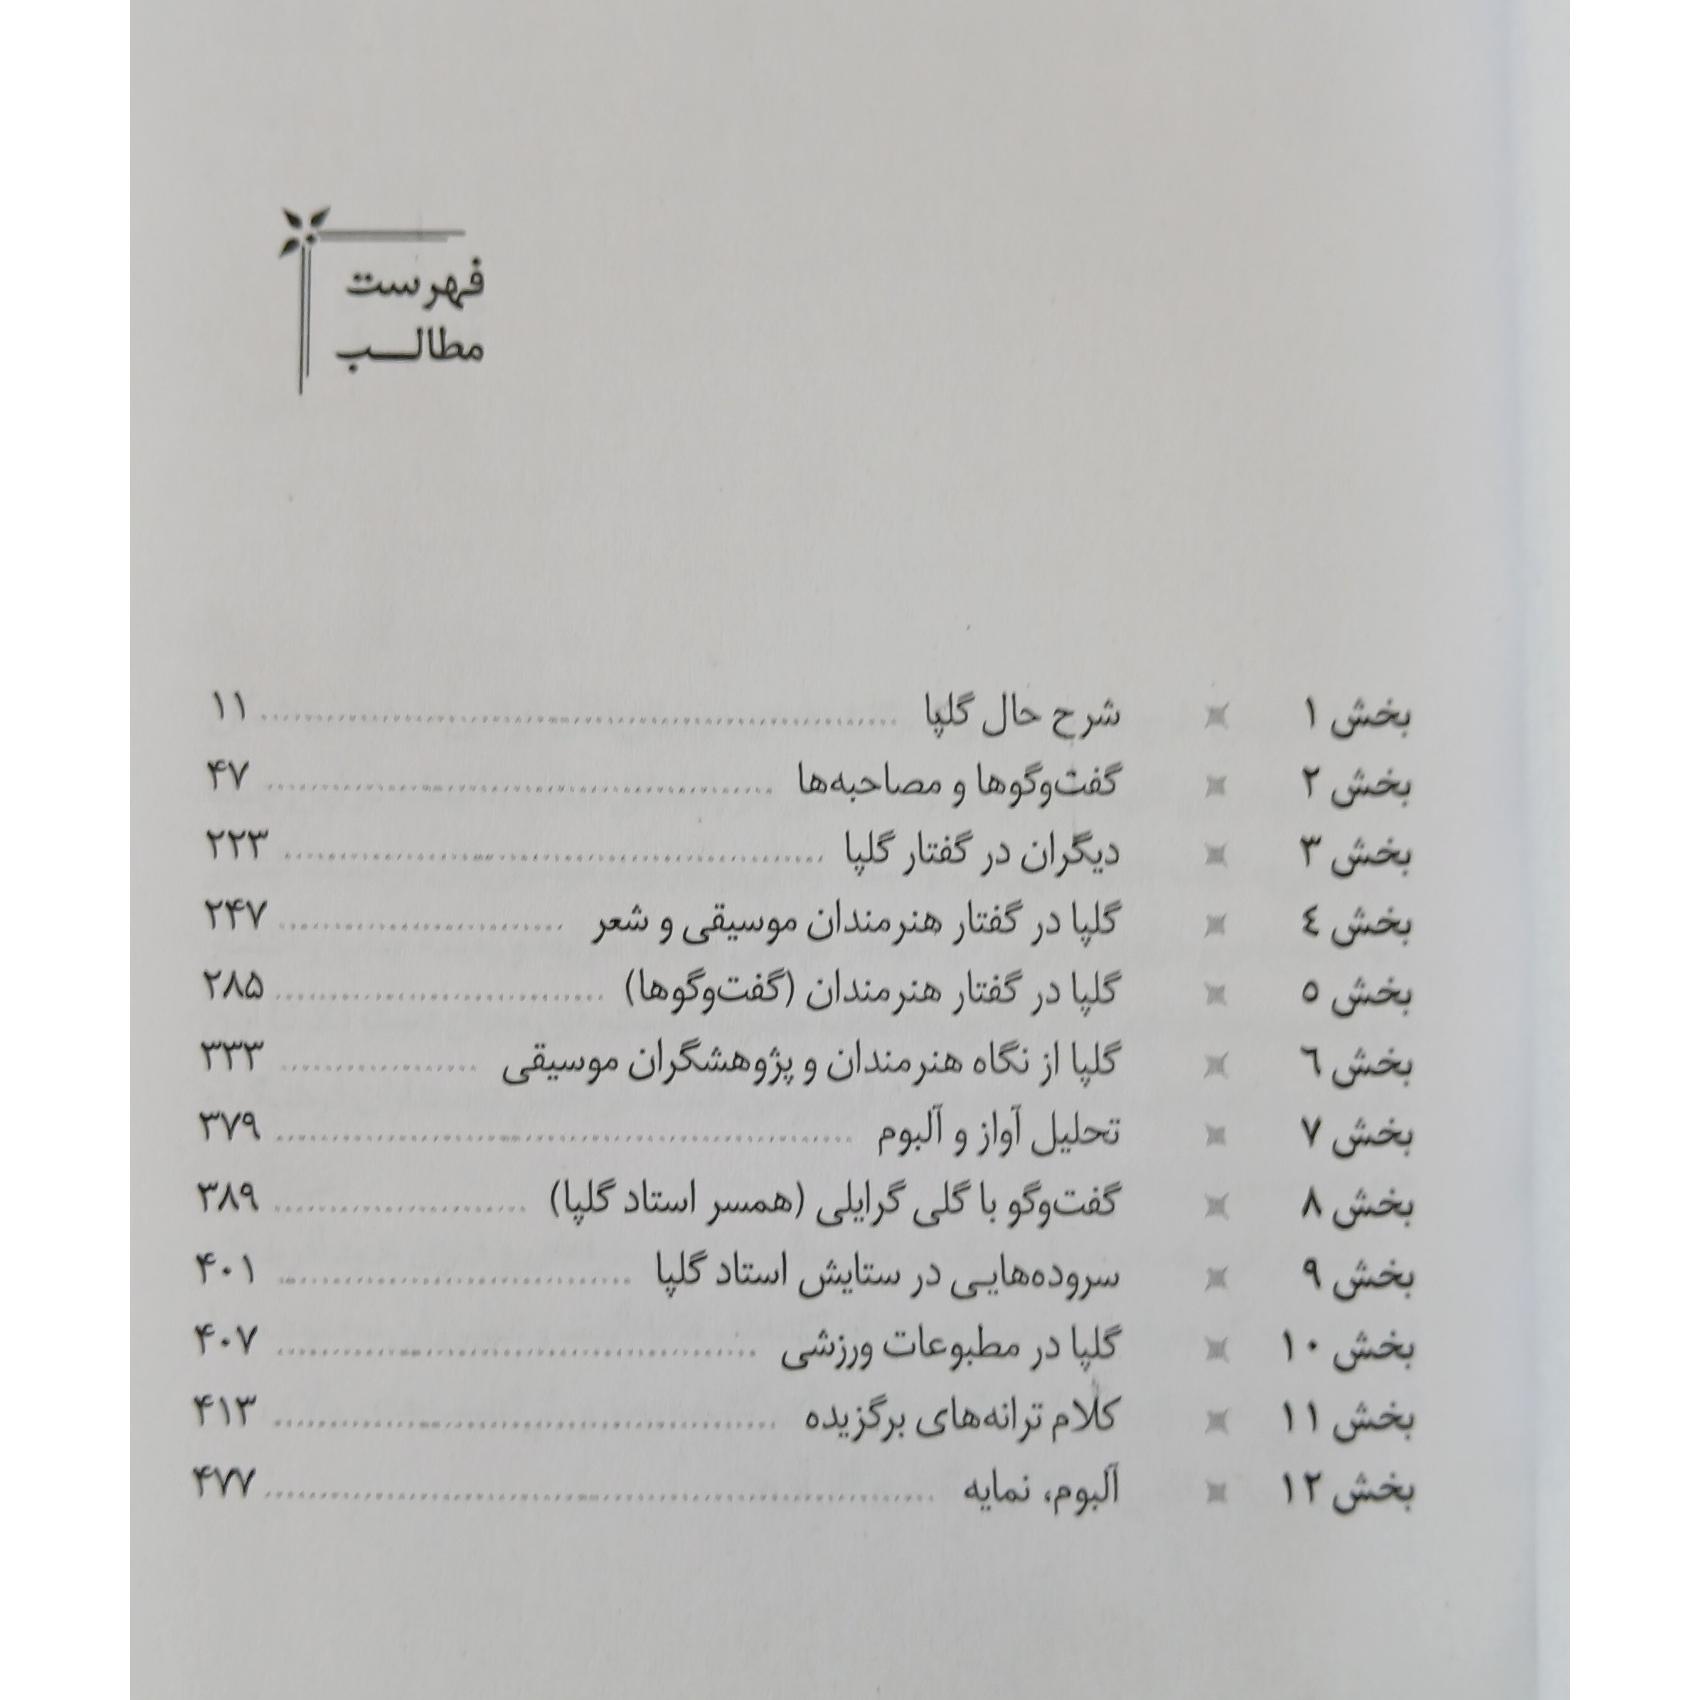 فهرست
مطالب
بخش ۱ شرح حال گلپا ۱۱
بخش ۲ گفت‌وگوها و مصاحبه‌ها ۴۷
بخش ۳ دیگران در گفتار گلپا ۲۲۳
بخش ٤ گلپا در گفتار هنرمندان موسیقی و شعر ۲۴۷
بخش ٥ گلپا در گفتار هنرمندان (گفت‌وگوها) ۲۸۵
بخش ٦ گلپا از نگاه هنرمندان و پژوهشگران موسیقی ۳۳۳
بخش ۷ تحلیل آواز و آلبوم ۳۷۹
بخش ۸ گفت‌وگو با گلی گرایلی (همسر استاد گلپا) ۳۸۹
بخش ۹ سروده‌هایی در ستایش استاد گلپا ۴۰۱
بخش ۱۰ گلپا در مطبوعات ورزشی ۴۰۷
بخش ۱۱ کلام ترانه‌های برگزیده ۴۱۳
بخش ۱۲ آلبوم، نمایه ۴۷۷